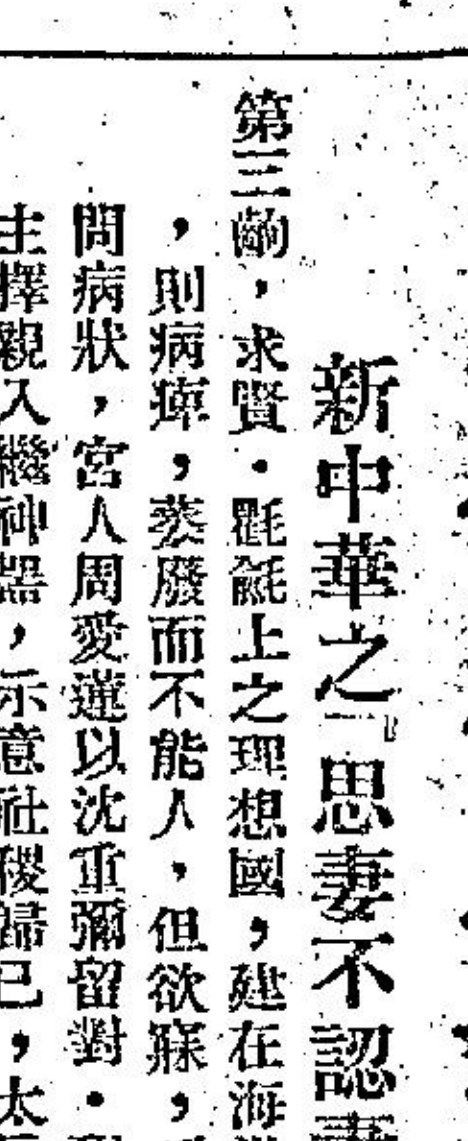 新中華之「思妻不認妻
第三齣，求賢．氍毹上之理想國，建在海
，則病瘁，委廢而不能人，但欲寐，
問病狀，宮人周愛蓮以沈重彌留對．
主擇親入繼神器，示意社稷歸己，太